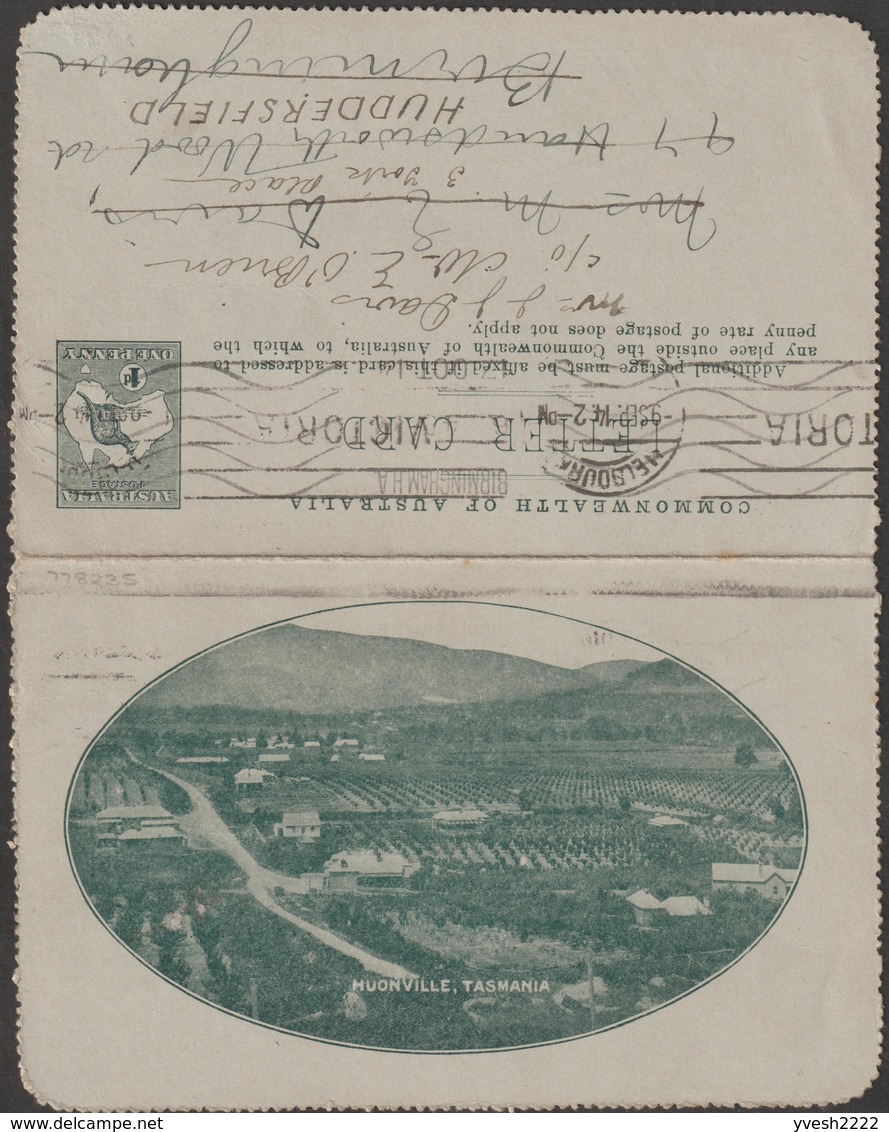 COMMONWEALTH OF AUSTRALIA
LETTER CARD
AUSTRALIA
POSTAGE
1D
ONE PENNY
MELBOURNE
-9 SEP. 14. 2-PM
VICTORIA
TORIA
BIRMINGHAM H.A
OCT
Additional postage must be affixed if this card is addressed to
any place outside the Commonwealth of Australia, to which the
penny rate of postage does not apply.
Mrs J J Davis
c/o Mr E. O'Brien
Mrs M. E. Davis,
3 York Place
97 Handsworth Wood rd
HUDDERSFIELD
Birmingham
778235
HUONVILLE, TASMANIA
yvesh2222